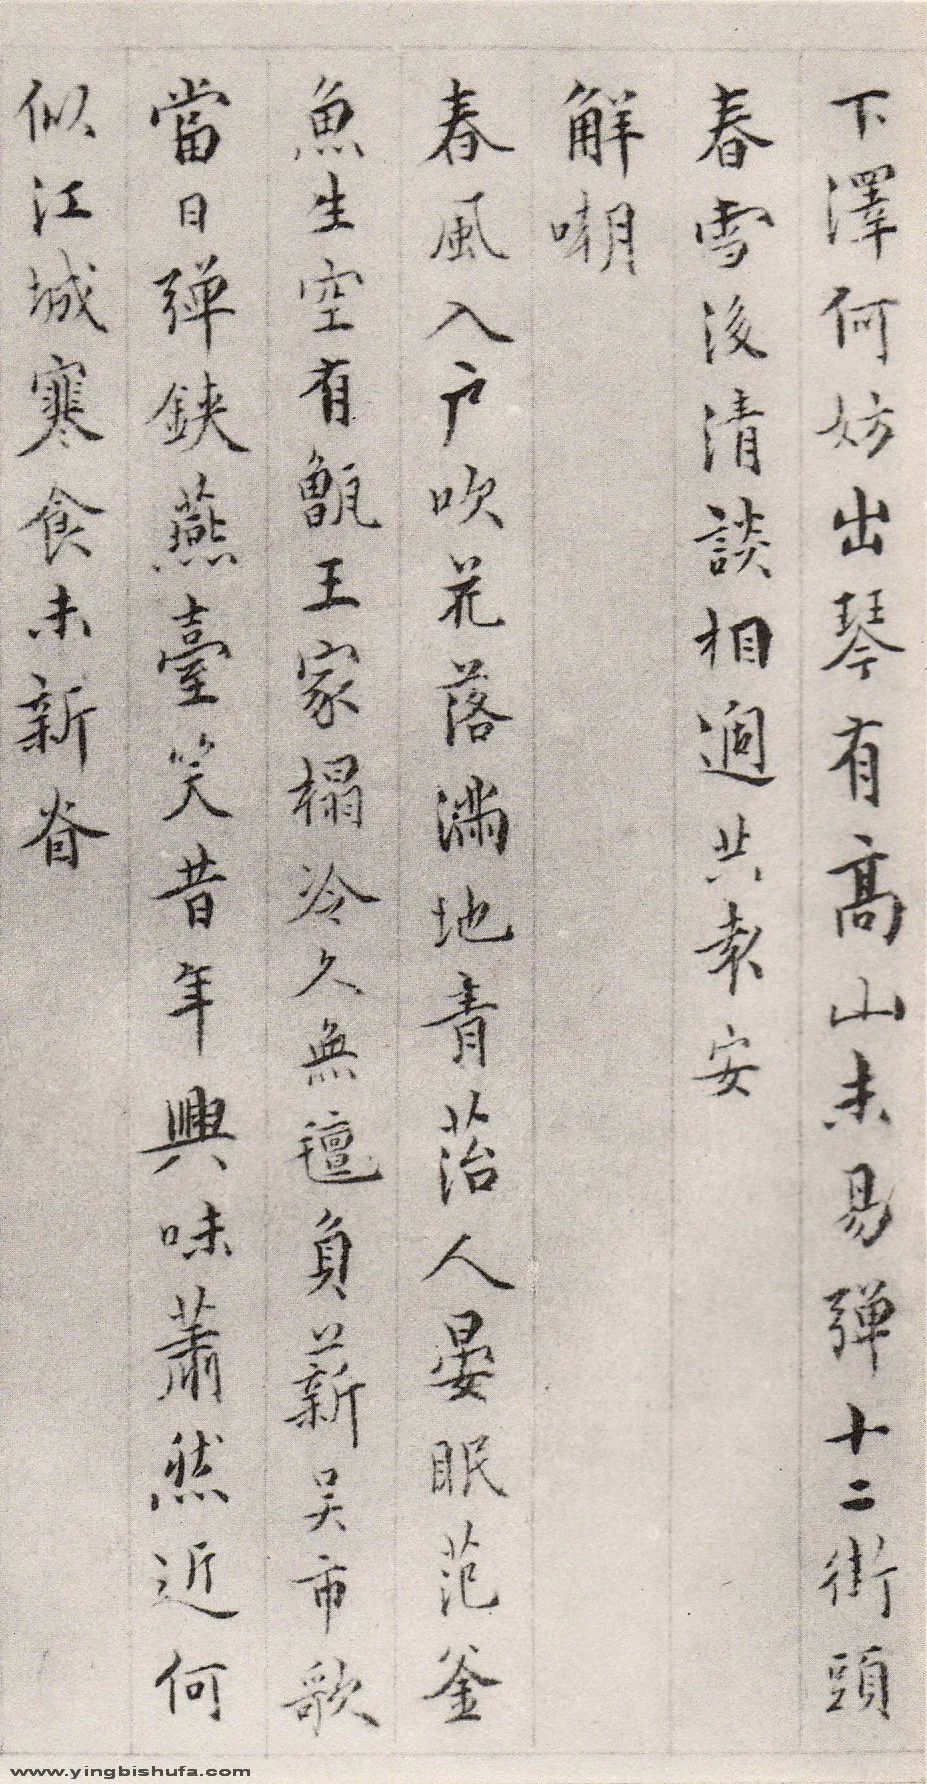 下澤何妨出琴有高山未易彈十二街頭
春雪後清談相過共袁安
解嘲
春風入戶吹花落滿地青菭人晏眠范釜
魚生空有甑王家榻冷久無氊負薪吳市歌
當日彈鋏燕臺笑昔年興味蕭然近何
似江城寒食未新
www.yingbishufa.com